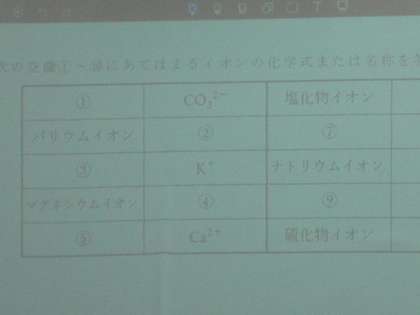 次の空欄①~⑱にあてはまるイオンの化学式または名称を答
① CO₃²⁻ 塩化物イオン
バリウムイオン ② ⑦
③ K⁺ ナトリウムイオン
マグネシウムイオン ④ ⑨
⑤ Ca²⁺ 硫化物イオン